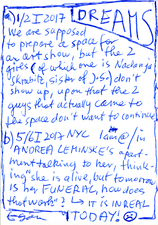 a) 1/2 I 2017 DREAMS
We are supposed
to prepare a space for
an art show, but the 2
girls (of which one is
sister of JoSo) don't
show up, upon that the 2
guys that actually came to
the space don't want to continue
b) 5/6 I 2017 NYC I am @/in
"ANDREA LEMINSKE's apart-
ment talking to her, think-
ing she is alive, but tomorrow
is her FUNERAL, how does
that work"? ↳ IT IS IN REAL
TODAY!